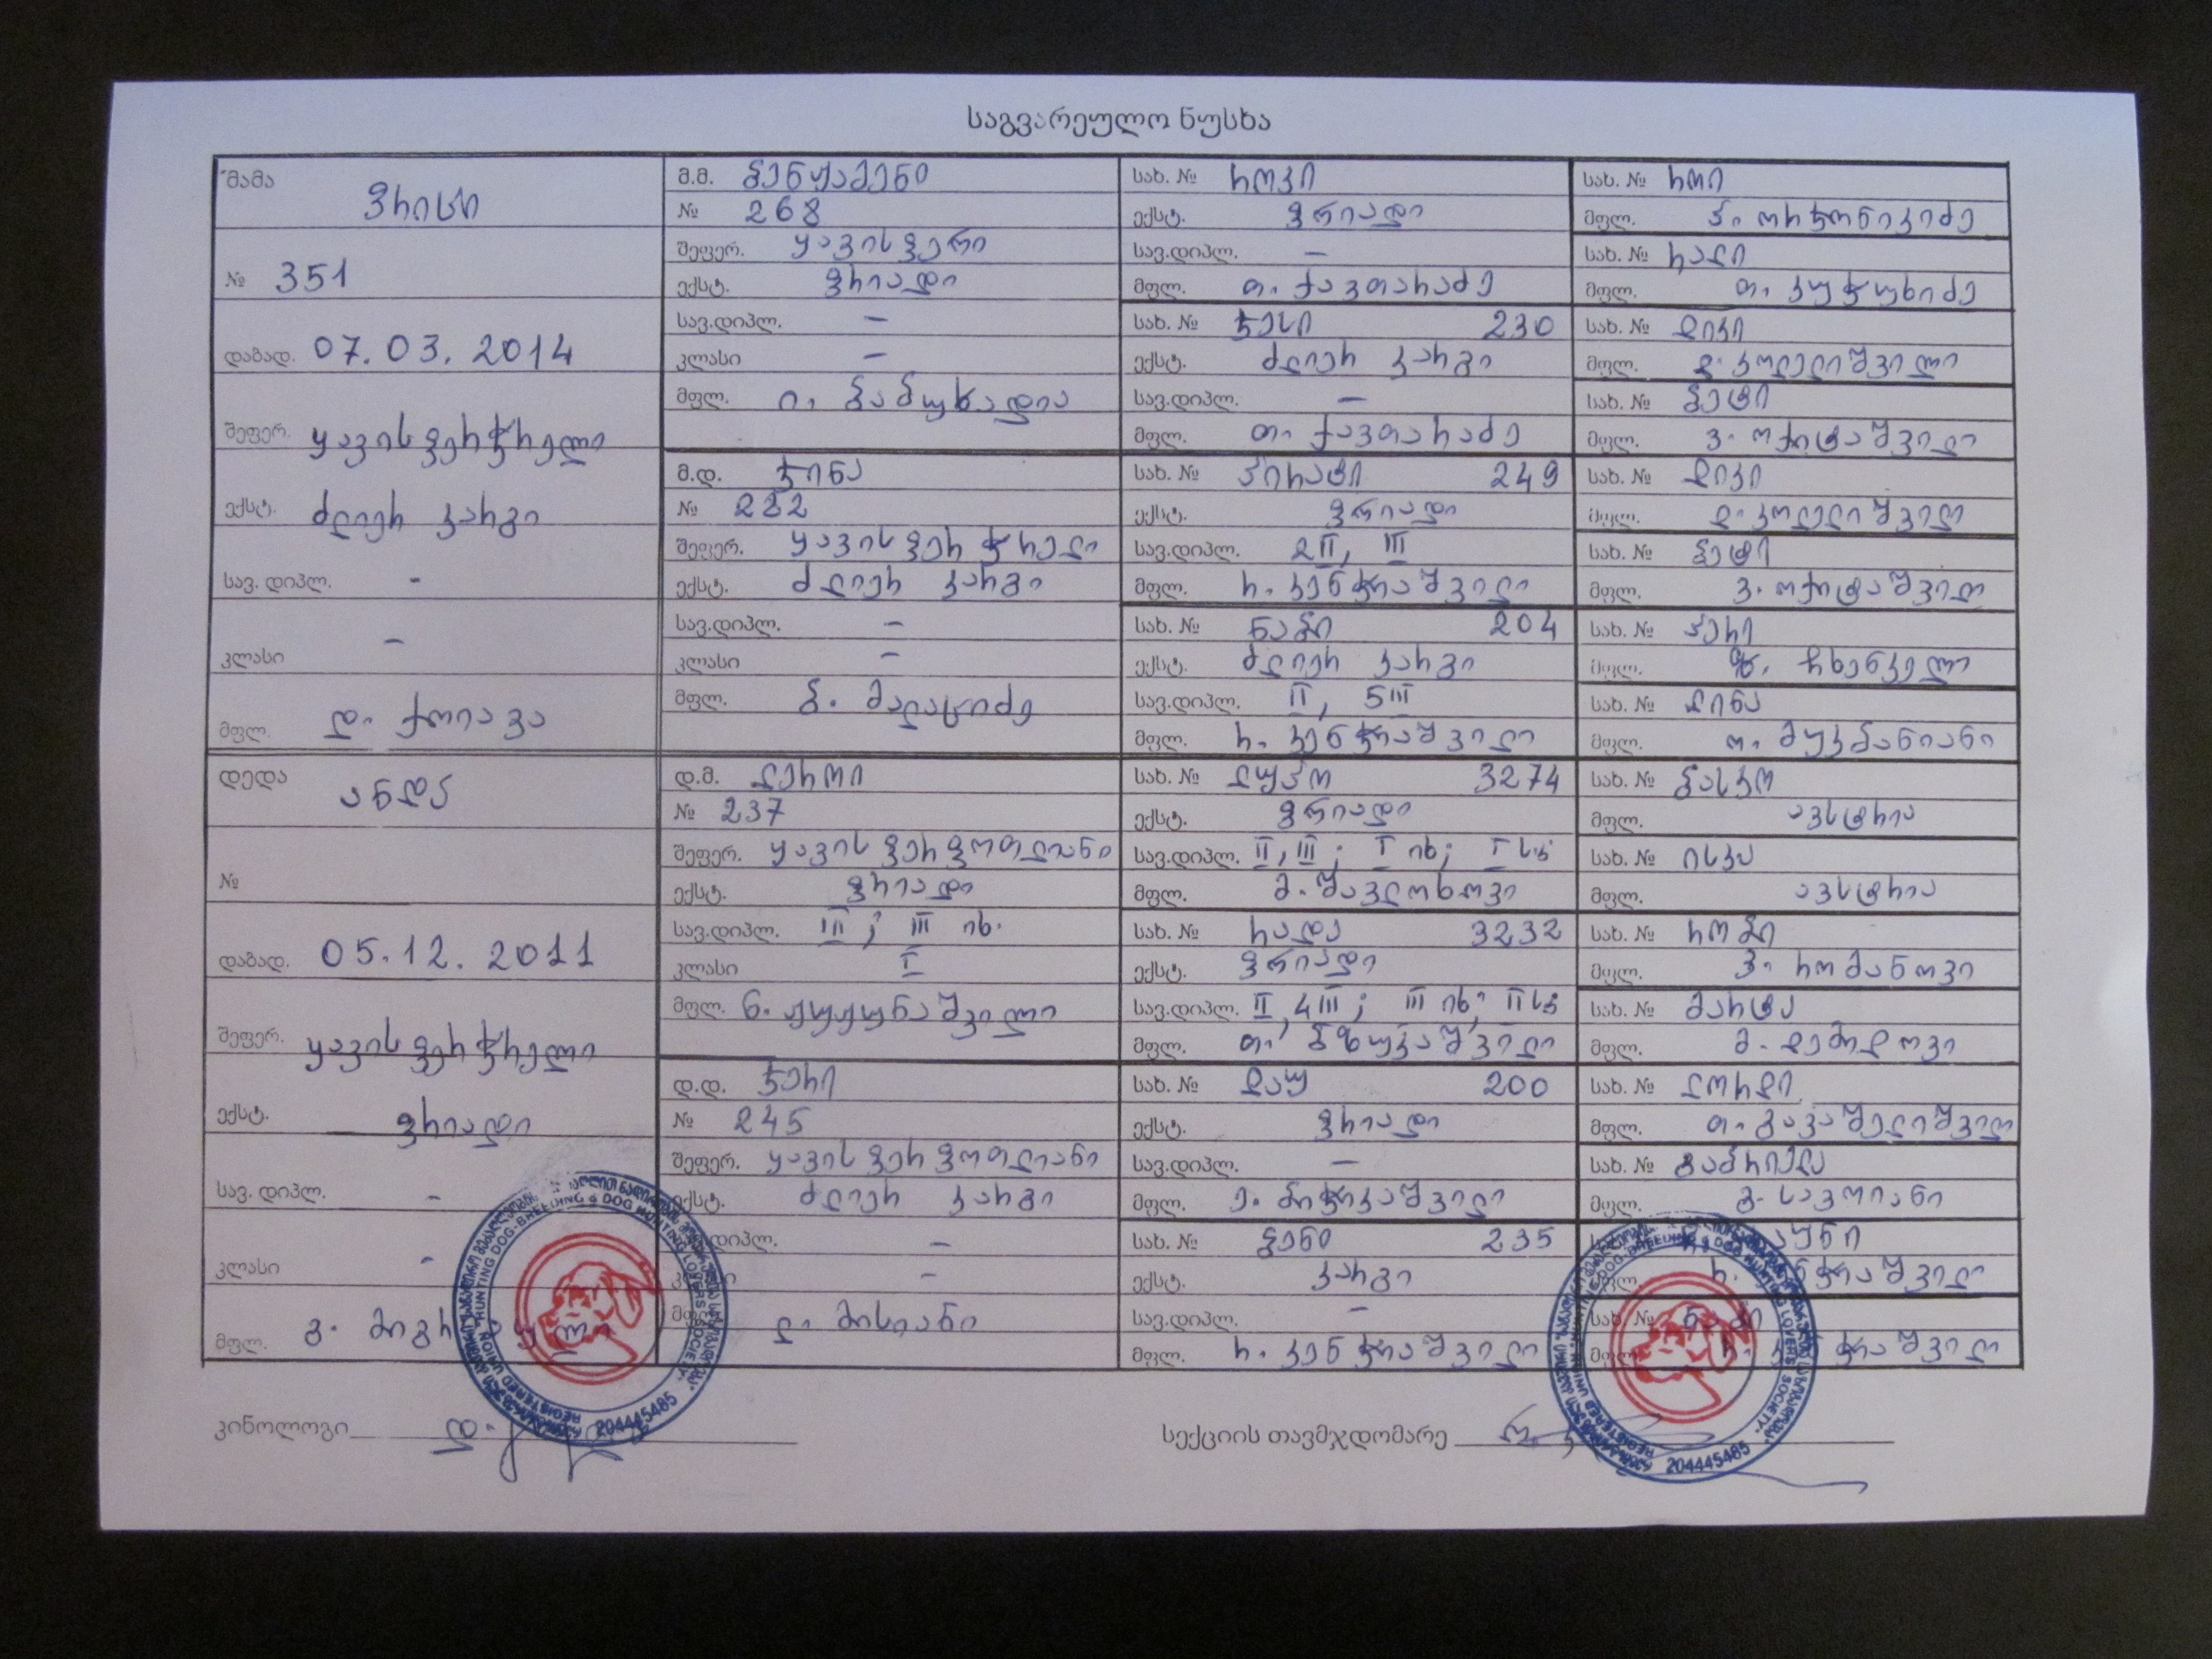 საგვარეულო ნუსხა
მამა
ფრისი
№ 351
დაბად. 07.03.2014
შეფერ. ყავისფერჭრელი
ექსტ. ძლიერ კარგი
სავ. დიპლ. -
კლასი -
მფლ. დ. ქოიავა
დედა
ანდა
№
დაბად. 05.12.2011
შეფერ. ყავისფერჭრელი
ექსტ. ფრიადი
სავ. დიპლ. -
კლასი -
მფლ. გ.
მ.მ. ბენჟამენი
№ 268
შეფერ. ყავისფერი
ექსტ. ფრიადი
სავ.დიპლ. -
კლასი -
მფლ. ი. ბაბუხადია
მ.დ. ჯინა
№ 282
შეფერ. ყავისფერჭრელი
ექსტ. ძლიერ კარგი
სავ.დიპლ. -
კლასი -
მფლ. ბ. მალასიძე
დ.მ. ლეროი
№ 237
შეფერ. ყავისფერფოთლიანი
ექსტ. ფრიადი
სავ.დიპლ. III; III იხ.
კლასი I
მფლ. ნ. ჟუჟუნაშვილი
დ.დ. ჯერი
№ 245
შეფერ. ყავისფერფოთლიანი
ექსტ. ძლიერ კარგი
დიპლ. -
-
ლ. მისიანი
სახ. № როკი
ექსტ. ფრიადი
სავ.დიპლ. -
მფლ. თ. ქავთარაძე
სახ. № ჯესი 230
ექსტ. ძლიერ კარგი
სავ.დიპლ. -
მფლ. თ. ქავთარაძე
სახ. № პირატი 249
ექსტ. ფრიადი
სავ.დიპლ. 2II, III
მფლ. რ. კენჭრაშვილი
სახ. № ნაბი 204
ექსტ. ძლიერ კარგი
სავ.დიპლ. II, 5III
მფლ. რ. კენჭრაშვილი
სახ. № ლუკო 3274
ექსტ. ფრიადი
სავ.დიპლ. II, III; I იხ; I სკ
მფლ. მ. შავლოხოვი
სახ. № რადა 3232
ექსტ. ფრიადი
სავ.დიპლ. II, 4III; III იხ; II სკ
მფლ. თ. ბზუკაშვილი
სახ. № ლაუ 200
ექსტ. ფრიადი
სავ.დიპლ. -
მფლ. ე. ბიჭიკაშვილი
სახ. № ჯენი 235
ექსტ. კარგი
სავ.დიპლ. -
მფლ. რ. კენჭრაშვილი
სახ. № როი
მფლ. პ. ორჯონიკიძე
სახ. № რალი
მფლ. თ. კუჭუხიძე
სახ. № ლიკი
მფლ. ლ. კოლელიშვილი
სახ. № ბეტი
მფლ. ვ. ოქიტაშვილი
სახ. № ლიკი
მფლ. ლ. კოლელიშვილი
სახ. № ბეტი
მფლ. ვ. ოქიტაშვილი
სახ. № პერე
მფლ. ზ. ჩხენკელი
სახ. № ლინა
მფლ. ო. მუკბანიანი
სახ. № ბასკო
მფლ. ავსტრია
სახ. № ისკა
მფლ. ავსტრია
სახ. № რობი
მფლ. ვ. რომანოვი
სახ. № მარტა
მფლ. მ. დემიდოვი
სახ. № ლორდი
მფლ. თ. გავაშელიშვილი
სახ. № გაბრიელა
მფლ. გ. საკოიანი
კინოლოგი
სექციის თავმჯდომარე
REGISTERED UNION "HUNTING DOG-BREEDING & DOG HUNTING LOVERS SOCIETY"
204445485
REGISTERED UNION "HUNTING DOG-BREEDING & DOG HUNTING LOVERS SOCIETY"
204445485